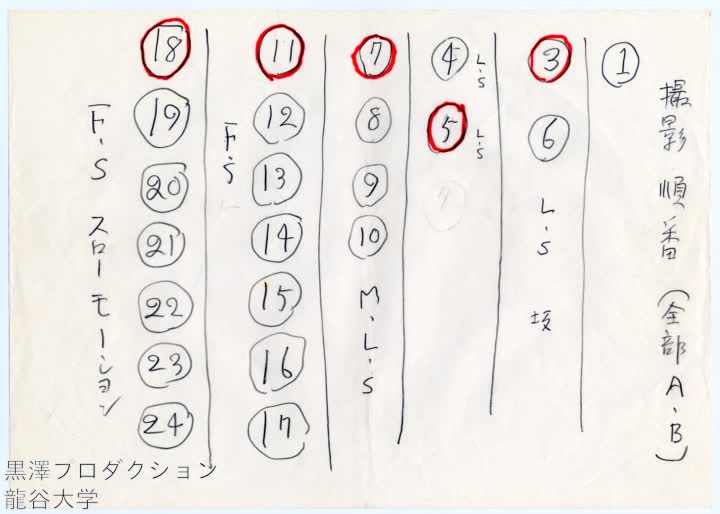 撮影順番(全部A、B)
①
③
⑥
L・S
坂
④ L・S
⑤ L・S
⑦
⑧
⑨
⑩
M・L・S
⑪
⑫
⑬
⑭
⑮
⑯
⑰
F・S
⑱
⑲
⑳
㉑
㉒
㉓
㉔
F・S スローモーション
黒澤プロダクション
龍谷大学